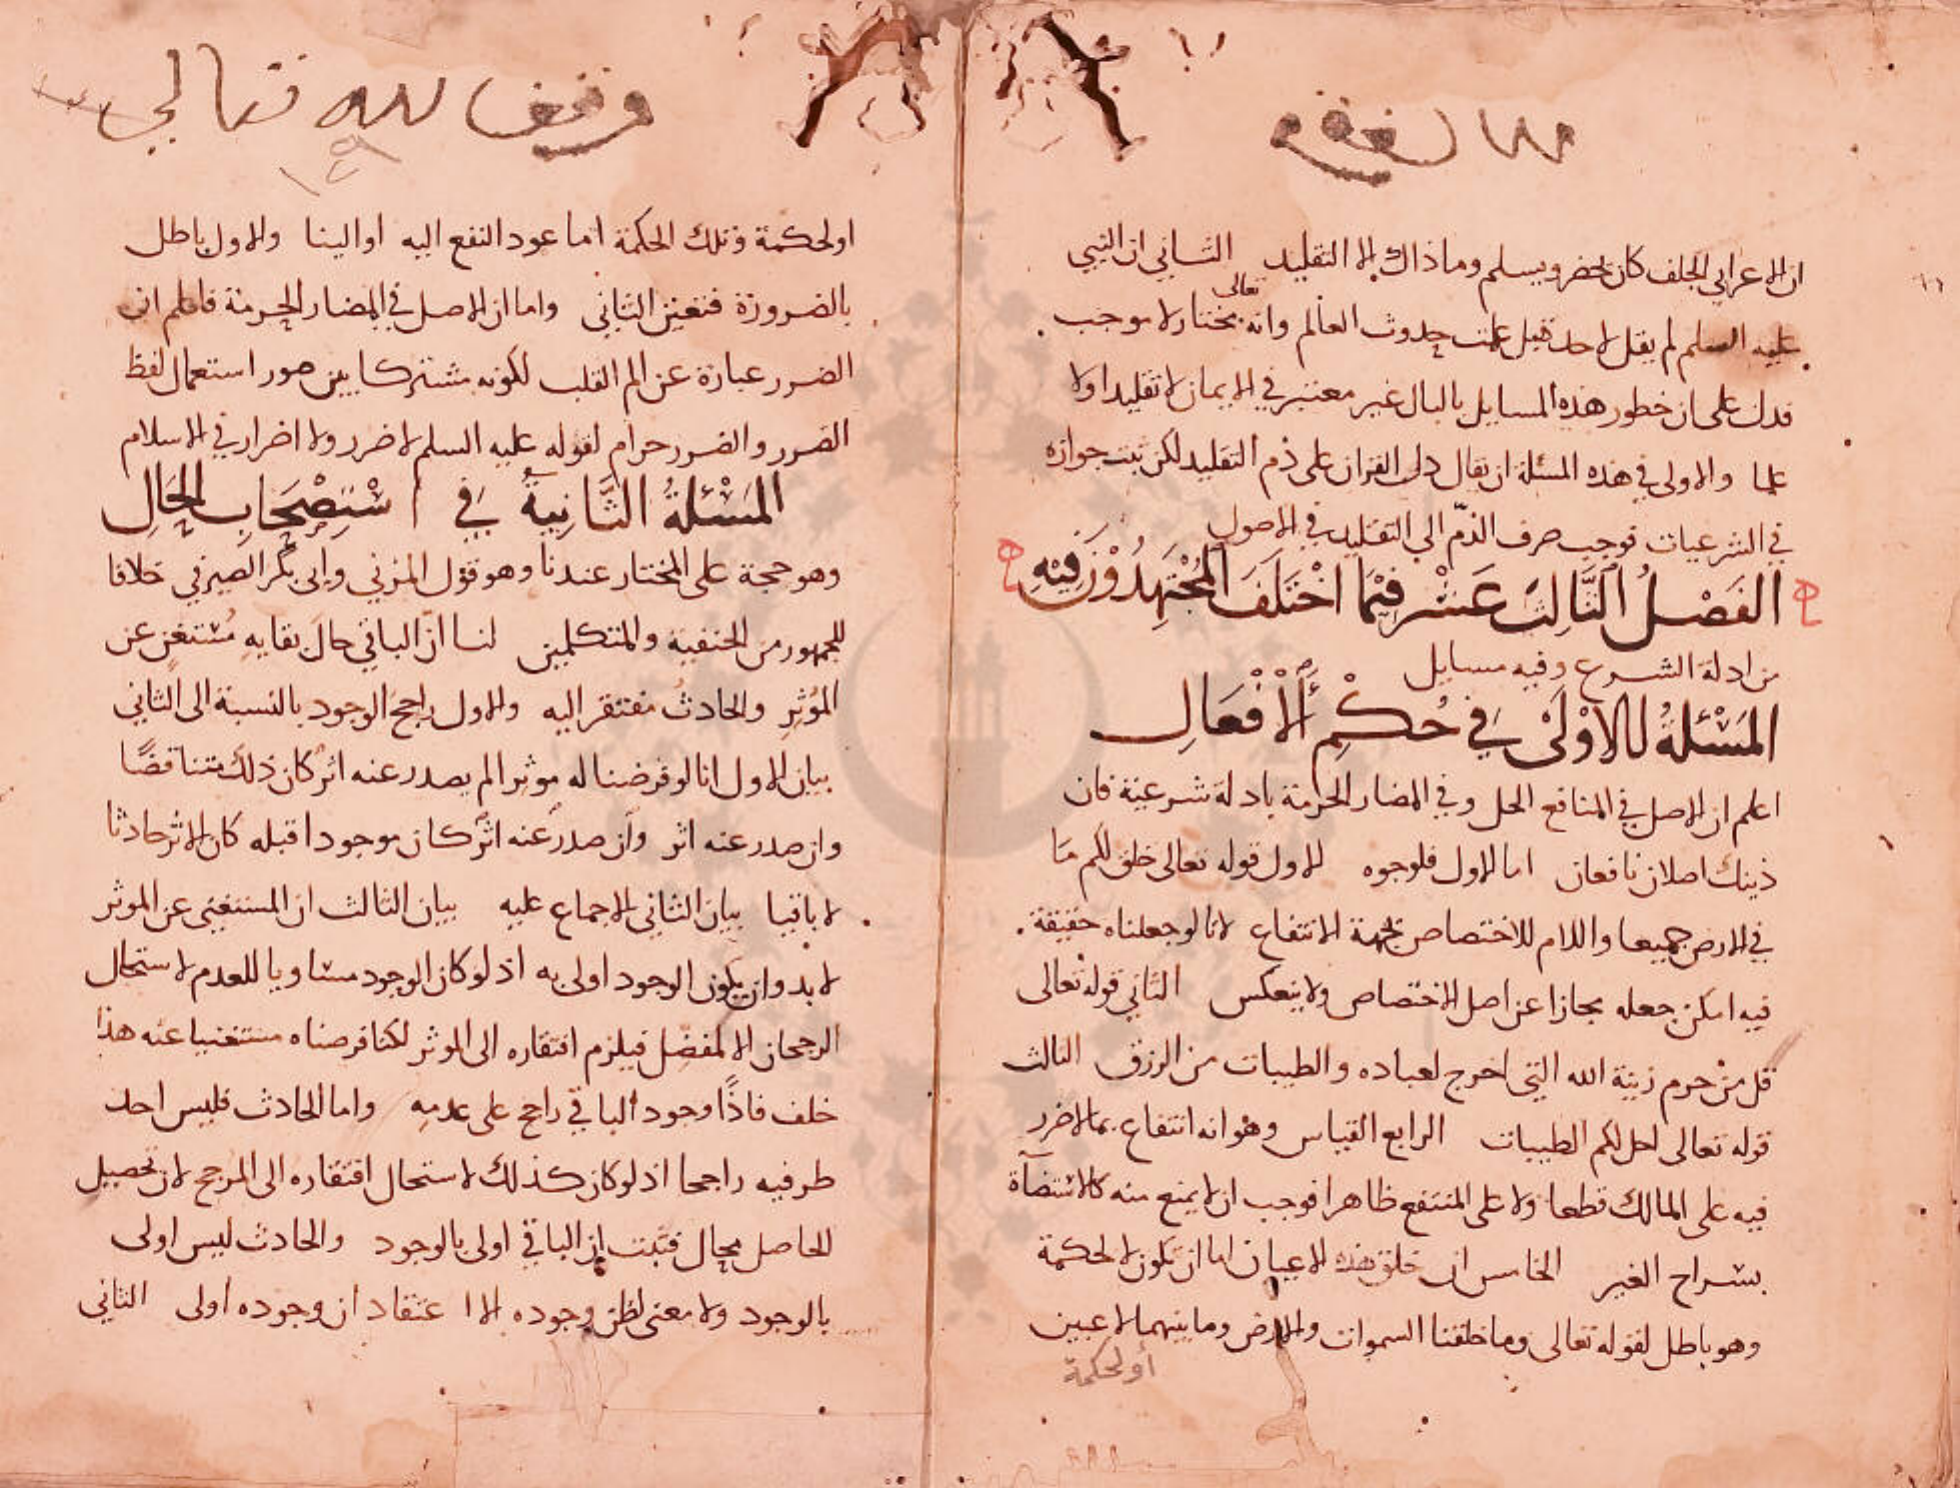 ان الاعرابي الجلف كان يحضر ويسلم وما ذاك الا التقليد الثاني ان النبي
عليه السلم لم يقل لاحد قبل علمت حدوث العالم وانه تعالى مختار لا موجب
فدل على ان خطور هذه المسايل بالبال غير معتبر في الايمان لا تقليدا ولا
علما والاولى في هذه المسئلة ان يقال دل القران على ذم التقليد لكن ثبت جوازه
في الشرعيات فوجب صرف الذمّ الى التقليد في الاصول
الفَصْلُ الثَّالِثَ عَشْر فِيْمَا اخْتَلَفَ المُجْتَهِدُوْنَ فِيْهِ
من ادلة الشرع وفيه مسايل
المَسْئلةُ الاوْلَىْ فِي حُكْمِ الْأَفْعَالِ
اعلم ان الاصل في المنافع الحل وفي المضار الحرمة بادلة شرعية فان
ذينك اصلان نافعان اما الاول فلوجوه الاول قوله تعالى خلق لكم مَا
في الارض جميعا واللام للاختصاص بجهة الانتفاع لانا لو جعلناه حقيقة
فيه امكن جعله مجازا عن اصل الاختصاص ولا ينعكس الثاني قوله تعالى
قل من حرم زينة الله التي اخرج لعباده والطيبات من الرزق الثالث
قوله تعالى احل لكم الطيبات الرابع القياس وهو انه انتفاع بما لا ضرر
فيه على المالك قطعا ولا على المنتفع ظاهرا فوجب ان لا يمنع منه كالاستضآة
بسراج الغير الخامس ان خلق هذه الاعيان اما ان تكون لا لحكمة
وهو باطل لقوله تعالى وما خلقنا السموات والارض وما بينهما لاعبين
أو لحكمة
وقف لله تعالى
او لحكمة وتلك الحكمة اما عود النفع اليه او الينا والاول باطل
بالضرورة فتعين الثاني واما ان الاصل في المضار الحرمة فاعلم ان
الضرر عبارة عن الم القلب لكونه مشتركا بين صور استعمال لفظ
الضرر والضرر حرام لقوله عليه السلم لا ضرر ولا اضرار في الاسلام
المَسْئلةُ الثَّانِيةُ فِي اسْتِصْحَابِ الحَالِ
وهو حجة على المختار عندنا وهو قول المزني وابى بكر الصيرفي خلافا
للجمهور من الحنفية والمتكلمين لنا انّ الباقي حالَ بقايه مُستغنٍ عن
المؤثِر والحادثُ مفتقر اليه والاول راجحُ الوجود بالنسبة الى الثاني
بيان الاول انا لو فرضنا له موثرا لم يصدر عنه اثر كان ذلك متناقضًا
وان صدر عنه اثر وان صدر عنه اثر كان موجودا قبله كان الاثر حادثا
لا باقيا بيان الثاني الاجماع عليه بيان الثالث ان المستغنى عن الموثر
لا بد وان يكون الوجود اولى به اذ لو كان الوجود مساويا للعدم لاستحال
الرجحان الا لمفصل فيلزم افتقاره الى الموثر لكنا فرضناه مستغنيا عنه هذا
خلف فاذًا وجود الباقي راجح على عدمِه واما الحادث فليس احد
طرفيه راجحا اذ لو كان كذلك لاستحال افتقاره الى المرجح لان تحصيل
الحاصل محال فثبت ان الباقي اولى بالوجود والحادث ليس اولى
بالوجود ولا معنى لظن وجوده الا اعتقاد ان وجوده اولى الثاني